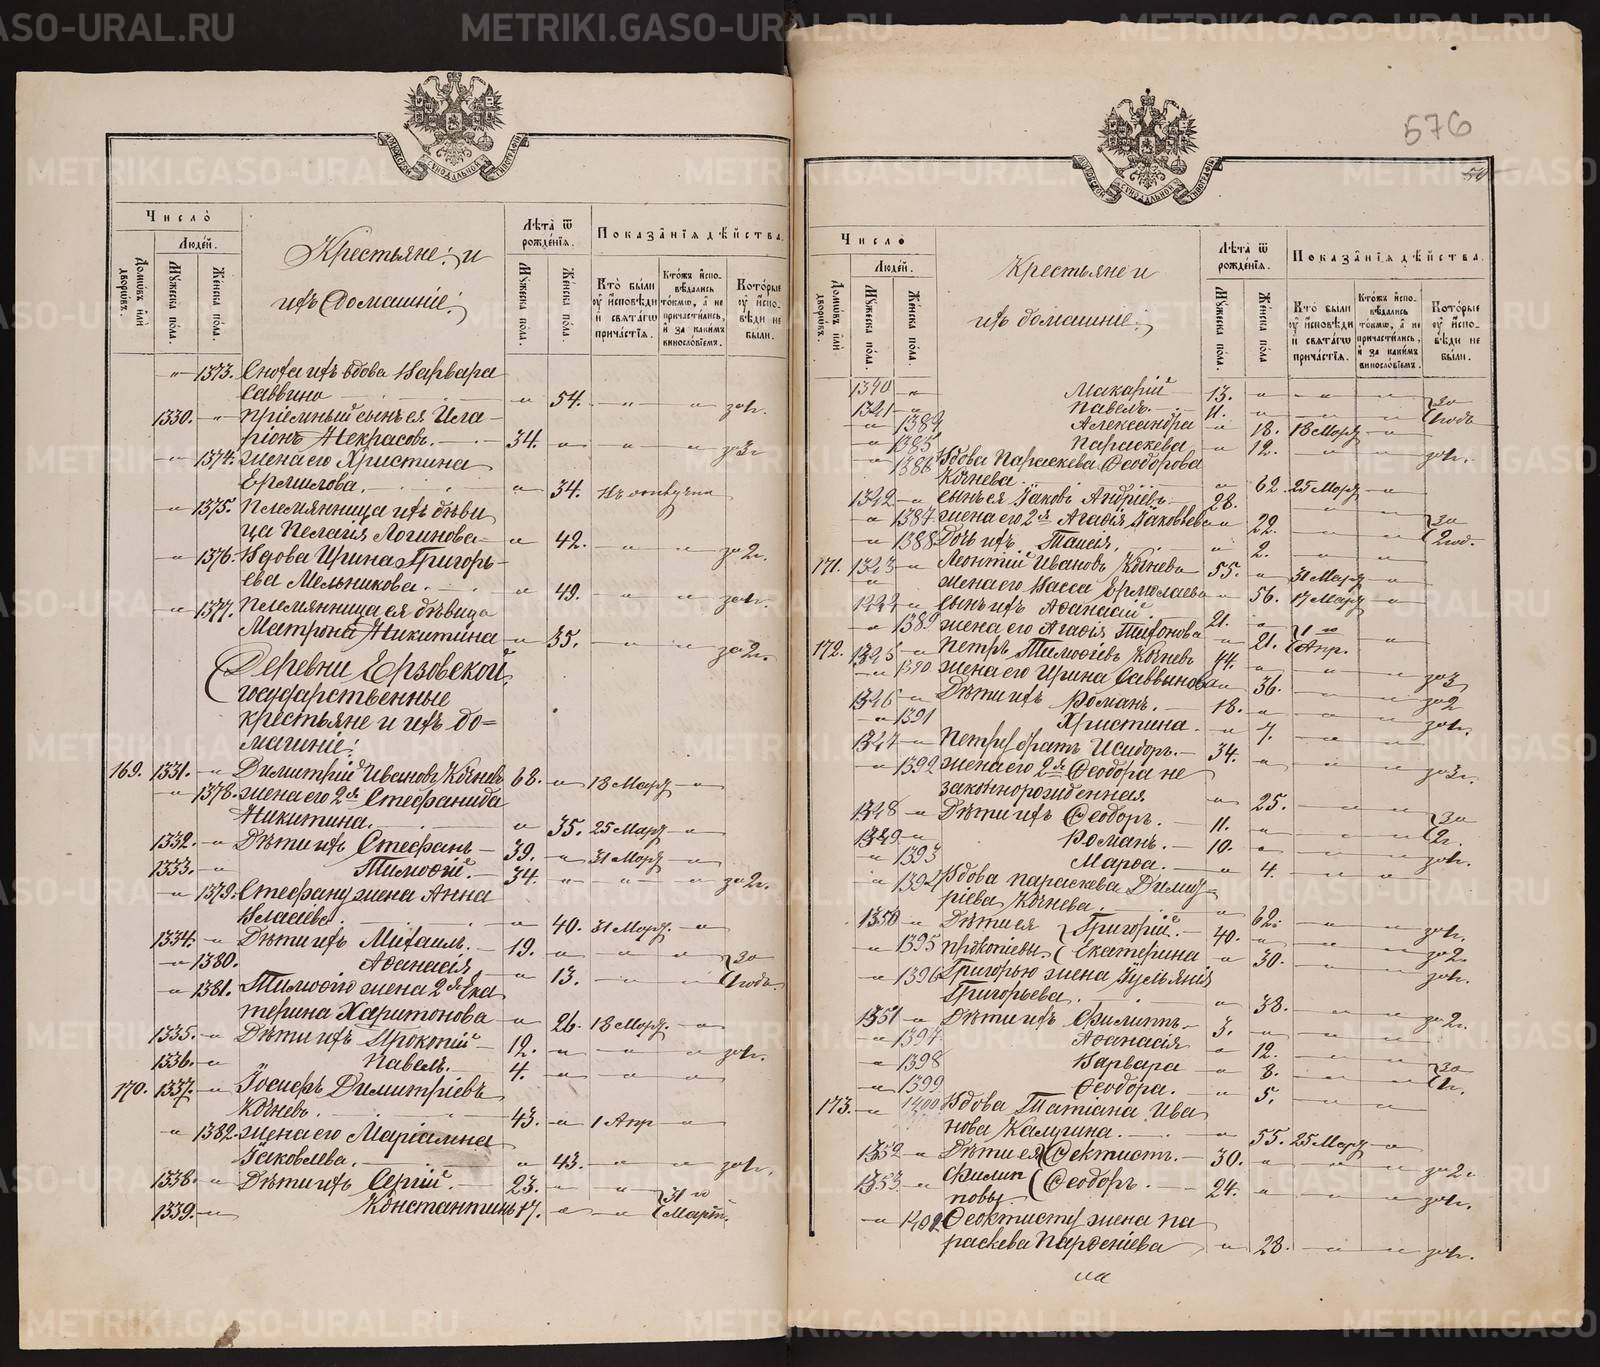 Число̀
Людей.
Домѡвъ или дворѡвъ.
Мужеска пола.
Женска пола.
Крестьяне: и
ихъ домашніе:
Лѣта ѿ рожденїѧ.
Мужеска пола.
Женска пола.
Показанїѧ дѣйства.
Кто были оу исповѣди и свѧтагѡ причастїѧ.
Ктожъ исповѣдались токмѡ, а не причастились, и за какимъ винословїемъ.
Которые оу исповѣди не были.
" 1373. Сноха ихъ вдова Варвара
Саввина " 54. " " за 1г.
1330. " Пріемный сынъ ея Ила-
ріонъ Некрасовъ. 34. " " " за 3г.
" 1374. жена его Христина
Ермилова. " 34.
" 1375. Племянница ихъ дѣви-
ца Пелагія Логинова " 42. " " за 2г.
" 1376. Вдова Ирина Григорь-
ева Мельникова. " 49. " " за 1г.
" 1377. Племянница ея дѣвица
Матрона Никитина " 35. " " за 2г.
Деревни Ерзовской
государственные
крестьяне и ихъ до=
машніе:
169. 1331. " Димитрій Ивановъ Кочневъ 68. " 18 Март. "
" 1378. жена его 2я Стефанида
Никитина. " 35. 25 Март. "
1332. " Дѣти ихъ Стефанъ 39. " 31 Март. "
1333. " Тимофій. 34. " " " за 2г.
" 1379. Стефану жена Анна
Власіева. " 40. 31 Март. "
1334. " Дѣти ихъ Михаилъ. 19. " " " за
" 1380. Афанасія " 13. " " 1 годъ.
" 1381. Тимофію жена 2я Ека-
терина Харитонова " 26. 18 Март. "
1335. " Дѣти ихъ Прокопій 12. " " " за 1г.
1336. " Павелъ. 4. " " "
170. 1337. " Іосифъ Димитріевъ
Кочневъ. 43. " 1 Апр "
" 1382. жена его Маріамна
Іаковлева. " 43. " " за 1г.
1338. " Дѣти ихъ Сергій. 23. " " 31 го
1339. " Константинъ 17. " " Март.
576
50
Число̀
Людей.
Домѡвъ или дворѡвъ.
Мужеска пола.
Женска пола.
Крестьяне и
ихъ домашніе:
Лѣта ѿ рожденїѧ.
Мужеска пола.
Женска пола
Показанїѧ дѣйства.
Кто были оу исповѣди и свѧтагѡ причастїѧ.
Ктожъ исповѣдались токмѡ, а не причастились, и за какимъ винословїемъ.
Которые оу исповѣди не были.
1340 " Макарій 13. " " " за
1341 " Павелъ. 11. " " " 1 годъ
" 1384 Александра " 18. 18 Март. "
" 1385 Параскева " 12. " " за 1г.
" 1386 Вдова Параскева Феодорова
Кочнева. " 62. 25 Март. "
1342 " сынъ ея Іаковъ Андріевъ 28. " " " за
" 1387 жена его 2я Агафія Іаковлева " 22. " " 2 год.
" 1388 Дочь ихъ Таисія. " 2. " "
171. 1343 " Леонтій Ивановъ Кочневъ 55. " 31 Март. "
" жена его Васса Ермолаева " 56. 17 Март. "
1344 " сынъ ихъ Афанасій 21. " 1 го
" 1389 жена его Агафія Тифонова " 21. Апр. "
172. 1345 " Петръ Тимофіевъ Кочневъ 44. " " " за 3
" 1390 жена его Ирина Саввинова " 36. " " за 2
1346 " Дѣти ихъ Романъ. 18. " " " за 1г.
" 1391 Христина. " 7. " "
1347 " Петру братъ Исидоръ. 34. " " " за 3г.
" 1392 жена его 2я Феодора не
законнорожденная " 25. " " за
1348 " Дѣти ихъ Феодоръ. 11. " " " 2г.
1349 " Романъ. 10. " " " за 1г.
" 1393 Марфа. " 4. " "
" 1394 Вдова Параскева Димит-
ріева Кочнева. " 62. " " за 1г.
1350 " Дѣти ея Григорій. 40. " " " за 2.
" 1395 Прокопіевы Екатерина " 30. " " за 1г.
" 1396 Григорью жена Іульянія
Григорьева. " 38. " " за 2г.
1351 " Дѣти ихъ Филиппъ 3. " " "
" 1397 Афанасія " 12. " " за
" 1398 Варвара " 8. " " 1г.
" 1399 Феодора. " 5. " "
173. " 1400 Вдова Татіана Ива-
нова Калугина. " 55. 25 Март. "
1352 " Дѣти ея Феоктистъ. 30. " " " за 2г
1353 " Филип- Феодоръ. 24. " " " за 1г.
повы
" 1402 Феоктисту жена Па-
раскева Парфеніева " 28. " " за 1г.
METRIKI.GASO-URAL.RU